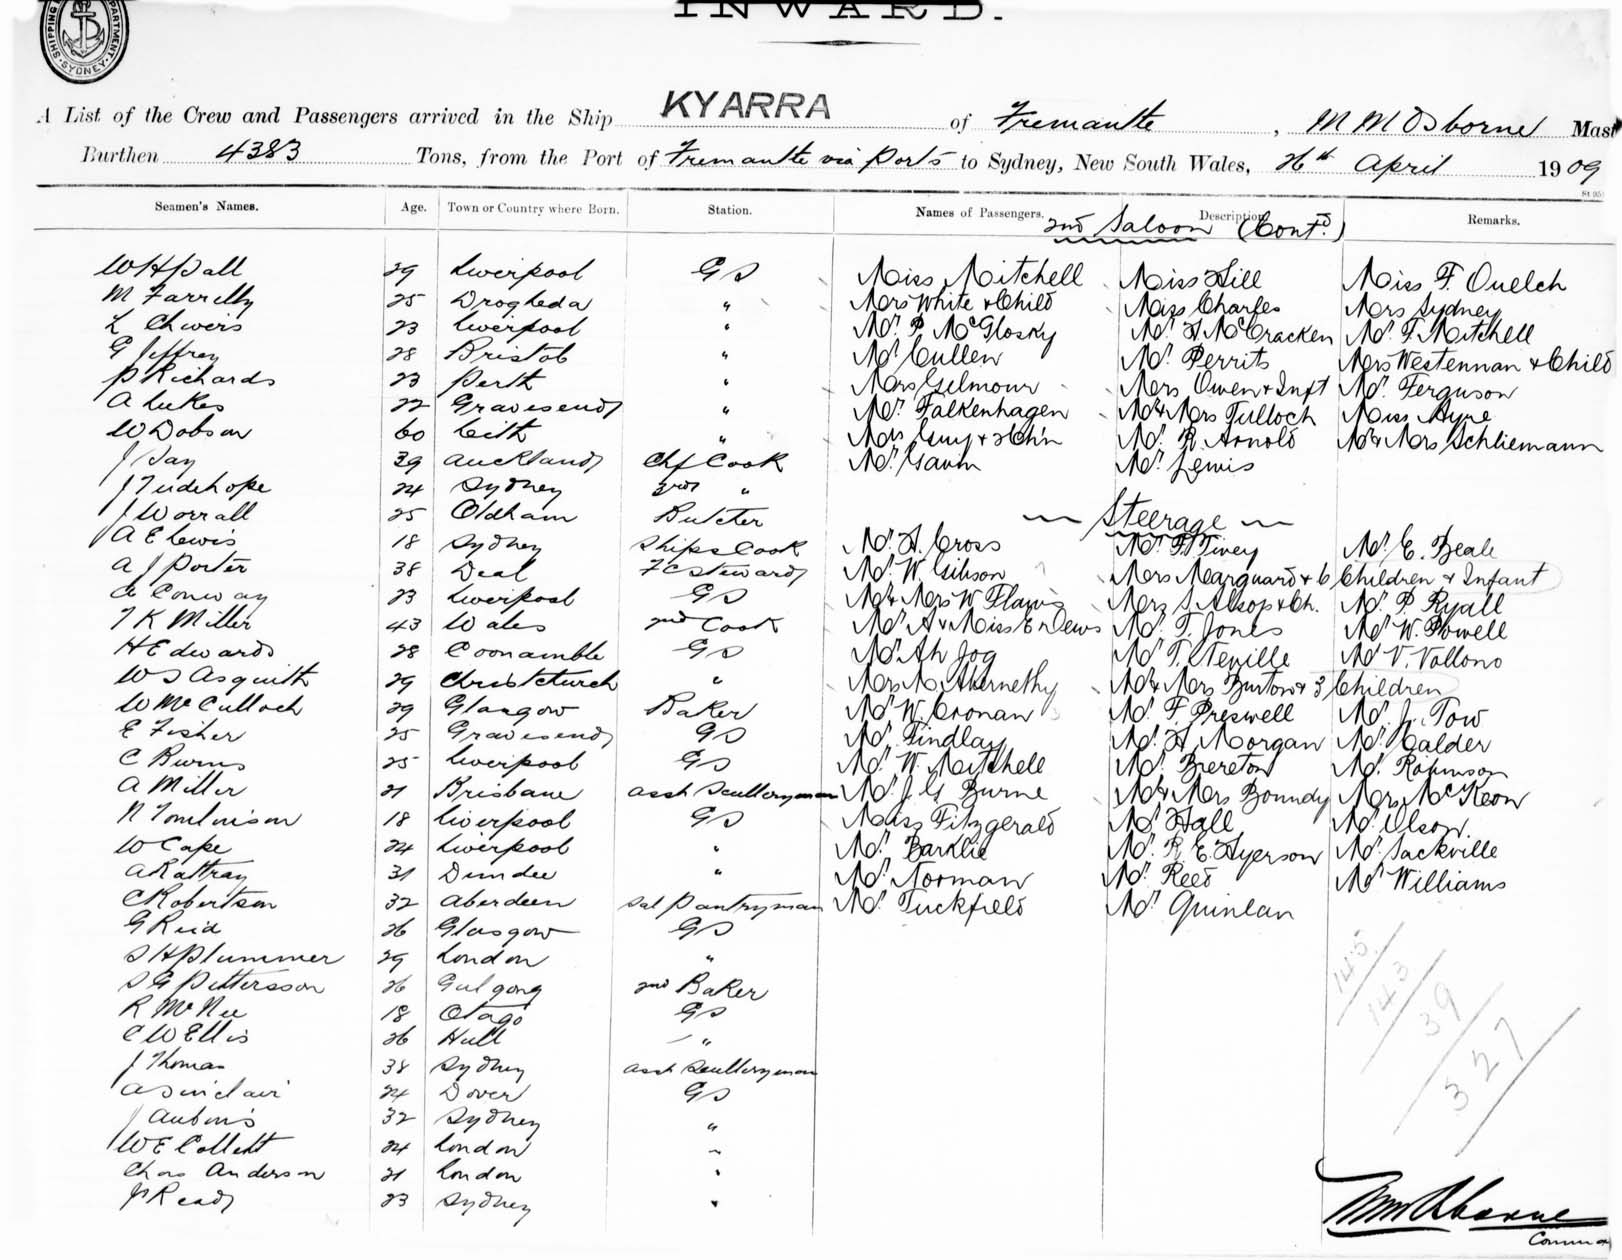 SHIPPING DEPARTMENT SYDNEY
INWARD.
A List of the Crew and Passengers arrived in the Ship KYARRA of Fremantle, M M Osborne Mast
Burthen 4383 Tons, from the Port of Fremantle via Ports to Sydney, New South Wales, 26th April 1909
Seamen's Names. Age. Town or Country where Born. Station. Names of Passengers. Description Remarks.
2nd Saloon (Contd.)
29 Liverpool GS Miss Mitchell Miss Hill Miss F. Ouelch
M Farrelly 25 Drogheda " Mrs White & Child Miss Charles Mrs Sydney
L 23 Liverpool " Mr. P. McGlosky Mr. H McCracken Mr. F. Mitchell
G Jeffrey 28 Bristol " Mr Cullen Mr. Perrits Mrs Westennan & Child
P Richards 23 Perth " Mrs Gilmour Mrs Owen & Inft Mr. Ferguson
A Lukes 22 Gravesend " Mr. Falkenhagen Mr & Mrs Tulloch Miss Ayre
W Dobson 60 Leith " Mrs Guy & 2 Ch'n Mr. R. Arnold Mr & Mrs Schliemann
J Day 39 Auckland Chf Cook Mr. Gavin Mr. Lewis
J Tudehope 24 Sydney 3rd "
J Worrall 25 Oldham Butcher
Steerage
A E Lewis 18 Sydney Ships Cook Mr. H. Cross Mr. F. Tivey Mr. E. Beale
A J Porter 38 Deal FC Steward Mr. W. Gibson Mrs Marquard & 6 Children & Infant
Conway 23 Liverpool GS Mr & Mrs W. Flavis Mrs S. Alsop & Ch. Mr. P. Ryall
T K Miller 43 Wales 2nd Cook Mr A & Miss E Dews Mr. T. Jones Mr. W. Powell
H Edwards 28 Coonamble GS Mr. Ah Jog Mr T. Neville Mr V. Vollono
W S Asquith 29 Christchurch " Mrs M. Abernethy Mr & Mrs Burton & 3 Children
W McCulloch 29 Glasgow Baker Mr W. Cronan Mr. F. Preswell Mr. J. Tow
E Fisher 25 Gravesend GS Mr. Findlay Mr. H. Morgan Mr. Calder
C Burns 25 Liverpool GS Mr. W. Mitchell Mr. Brereton Mr. Robinson
A Miller 21 Brisbane asst Scullery man Mr. J. G. Burne Mr & Mrs Boundy Mrs McKeon
N Tomlinson 18 Liverpool GS Miss Fitzgerald Mr. Hall Mr. Olson
W Cape 24 Liverpool " Mr. Barklie Mr. R. E. Hyerson Mr. Sackville
A Rattray 31 Dundee " Mr. Norman Mr. Reed Mr Williams
C Robertson 32 Aberdeen Sal Pantryman Mr. Tuckfield Mr Quinlan
G Reid 26 Glasgow GS
S H Plummer 29 London "
S G Pettersson 26 Gulgong 2nd Baker
R McNee 18 Otago GS
C W Ellis 26 Hull "
J Thomas 38 Sydney asst Scullery man
A Sinclair 24 Dover GS
J 32 Sydney "
W E Collett 24 London "
Chas Anderson 21 London "
J Ready 23 Sydney "
145
143
39
327